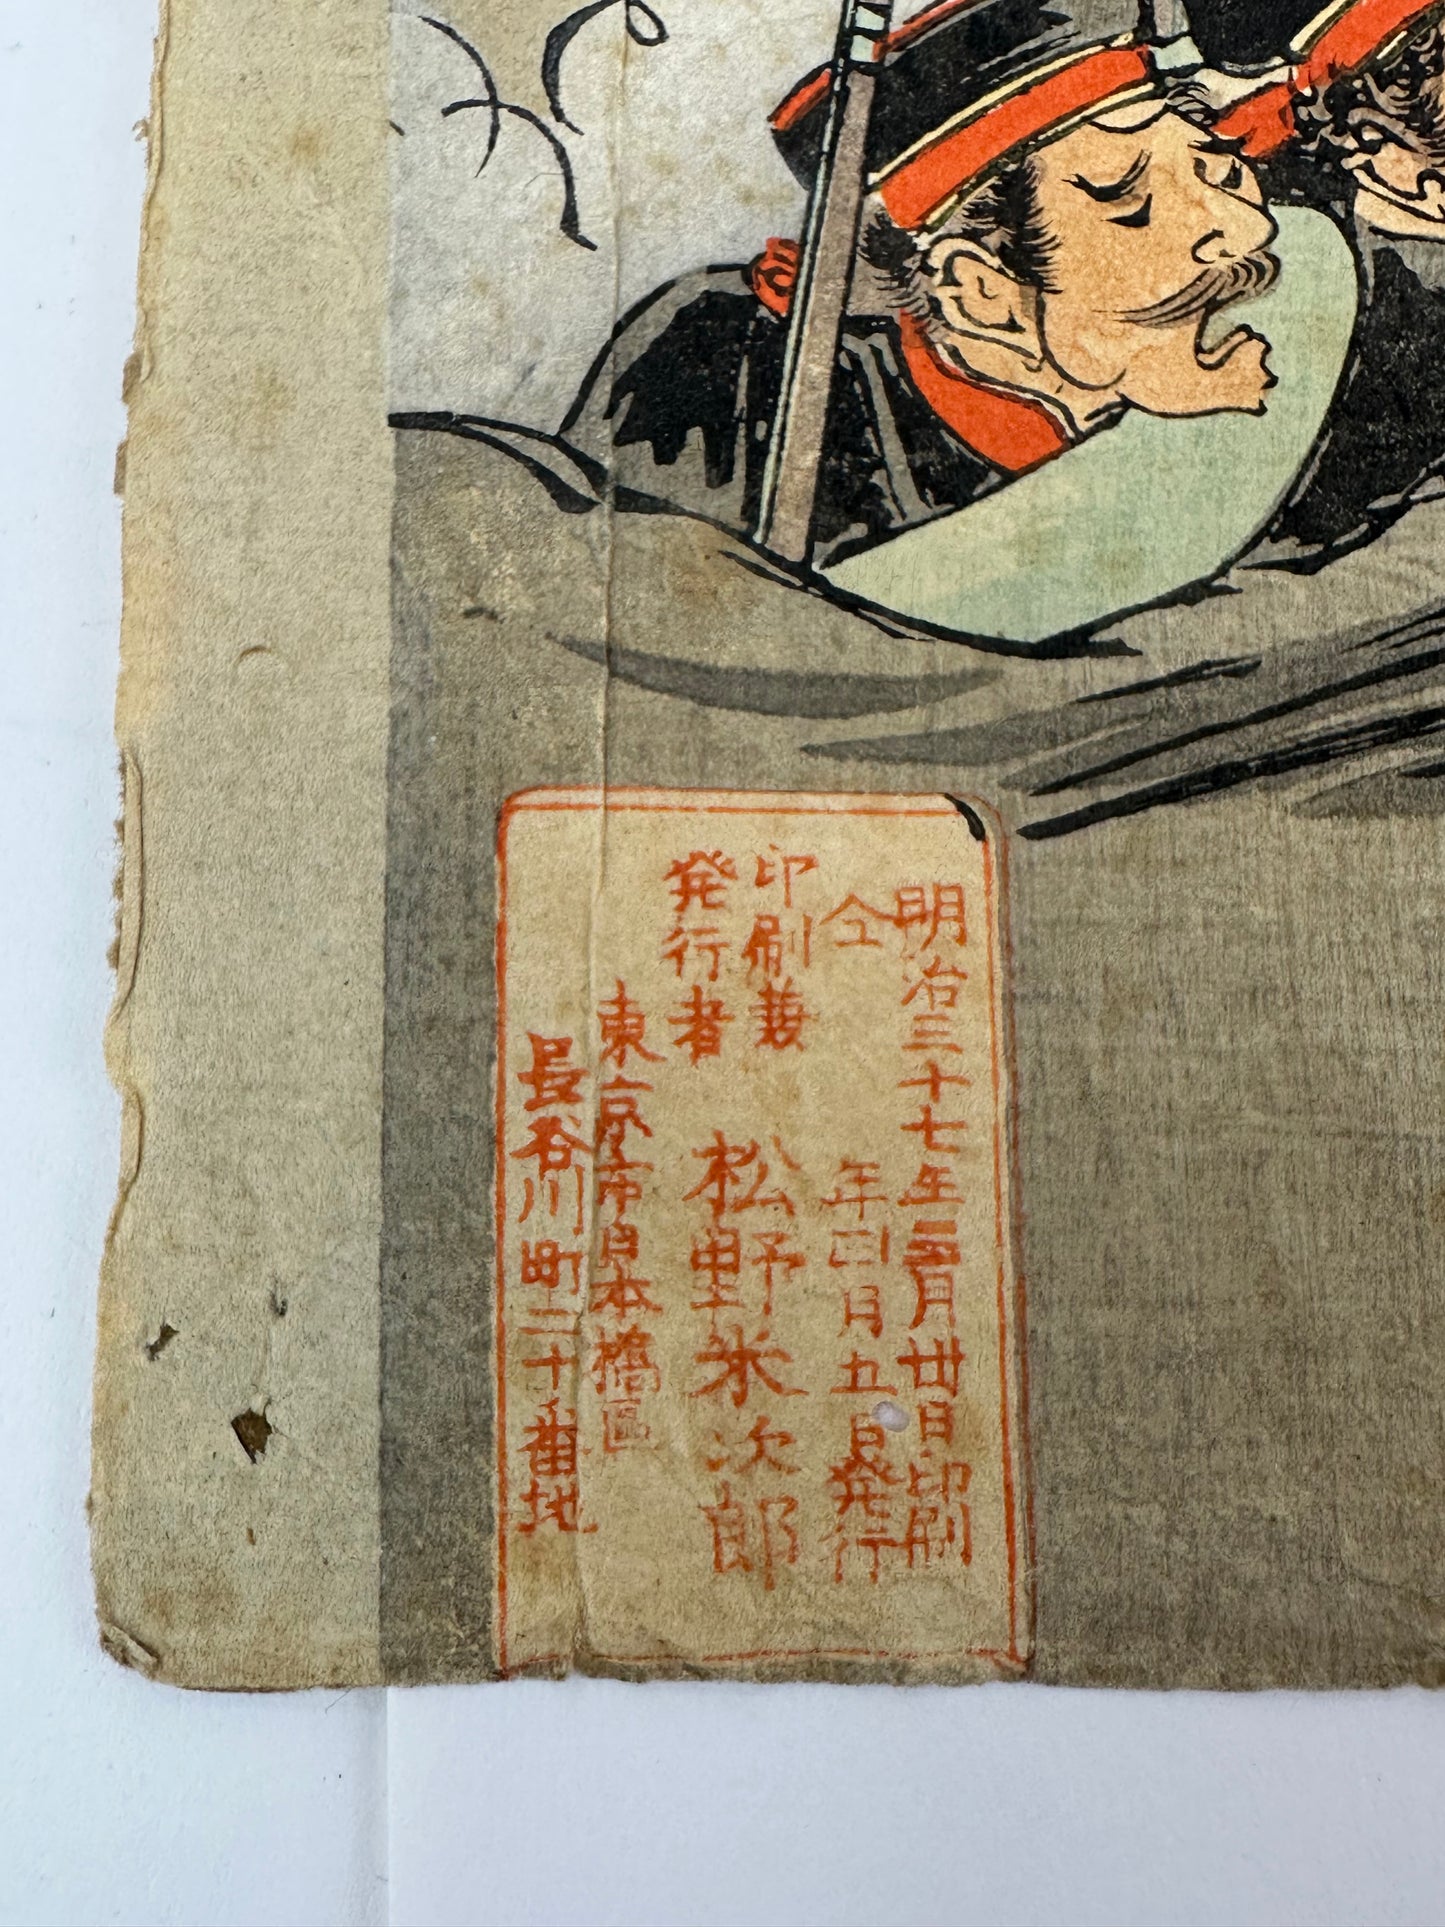 明治三十七年三月廿日印刷
仝年四月五日発行
印刷兼
発行者
松野米次郎
東京市日本橋區
長谷川町二十番地